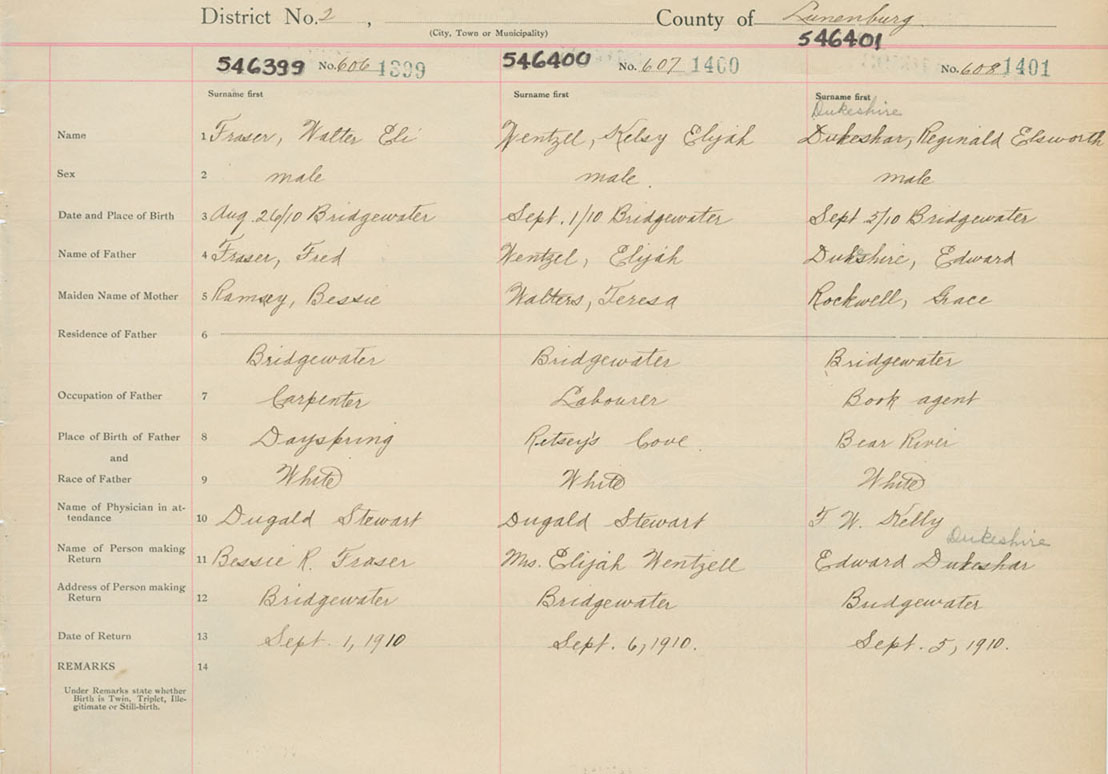 District No. 2 , County of Lunenburg
(City, Town or Municipality)
546399 No. 606 1399 546400 No. 607 1400 546401 No. 608 1401
Surname first Surname first Surname first
Dukeshire
Name 1 Fraser, Walter Eli Wentzell, Kelsy Elijah Dukeshar, Reginald Elsworth
Sex 2 male male. male
Date and Place of Birth 3 Aug. 26/10 Bridgewater Sept. 1/10 Bridgewater Sept 5/10 Bridgewater
Name of Father 4 Fraser, Fred Wentzel, Elijah Dukeshire, Edward
Maiden Name of Mother 5 Ramsey, Bessie Walters, Teresa Rockwell, Grace
Residence of Father 6
Bridgewater Bridgewater Bridgewater
Occupation of Father 7 Carpenter Labourer Book agent
Place of Birth of Father 8 Dayspring Ritsey's Cove. Bear River
and
Race of Father 9 White White White
Name of Physician in at-
tendance 10 Dugald Stewart Dugald Stewart F. W. Kelly
Dukeshire
Name of Person making
Return 11 Bessie R. Fraser Mrs. Elijah Wentzell Edward Dukeshar
Address of Person making
Return 12 Bridgewater Bridgewater Bridgewater
Date of Return 13 Sept. 1, 1910 Sept. 6, 1910. Sept. 5, 1910.
REMARKS 14
Under Remarks state whether
Birth is Twin, Triplet, Ille-
gitimate or Still-birth.